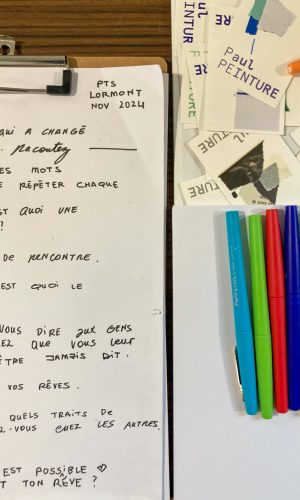 PTS
LORMONT
NOV 2024
QUI A CHANGÉ
Racontez
ES MOTS
E RÉPÉTER CHAQUE
ST QUOI UNE
?
DE RENCONTRE.
EST QUOI LE
VOUS DIRE AUX GENS
EZ QUE VOUS LEUR
ÊTRE JAMAIS DIT.
VOS RÊVES.
QUELS TRAITS DE
Z-VOUS CHEZ LES AUTRES.
EST POSSIBLE
T TON RÊVE ?
Paul
PEINTUR
Paul
PEINTURE
NTURE
TURE